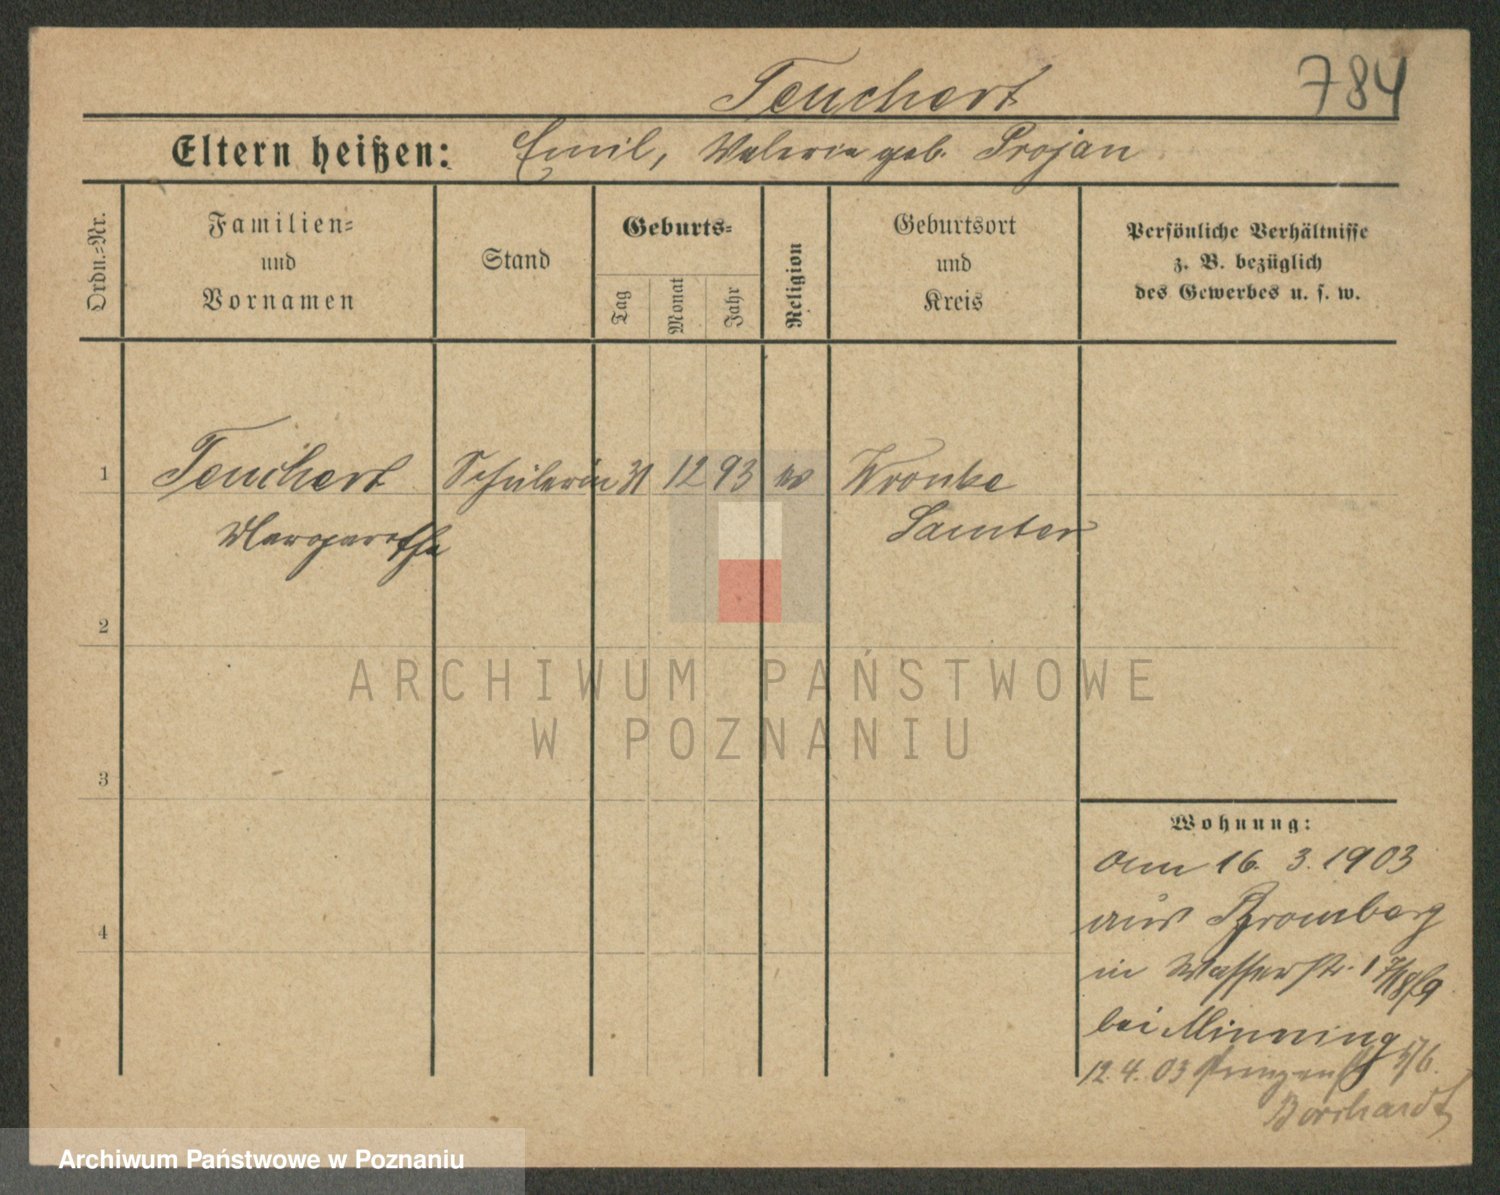 784
Teuchert
Eltern heißen: Emil, Valerie geb. Projan
Ordn.=Nr.
Familien=
und
Vornamen
Stand
Geburts=
Tag
Monat
Jahr
Religion
Geburtsort
und
Kreis
Persönliche Verhältnisse
z. B. bezüglich
des Gewerbes u. s. w.
1 Teuchert Schülerin 31 12 93 Wronke
Margarethe Samter
2
3
4
ARCHIWUM PAŃSTWOWE
W POZNANIU
Wohnung:
am 16. 3. 1903
aus Bromberg
in Wasserstr.
bei Minning
12. 4. 03 Prinzenstr
Borchardt
Archiwum Państwowe w Poznaniu